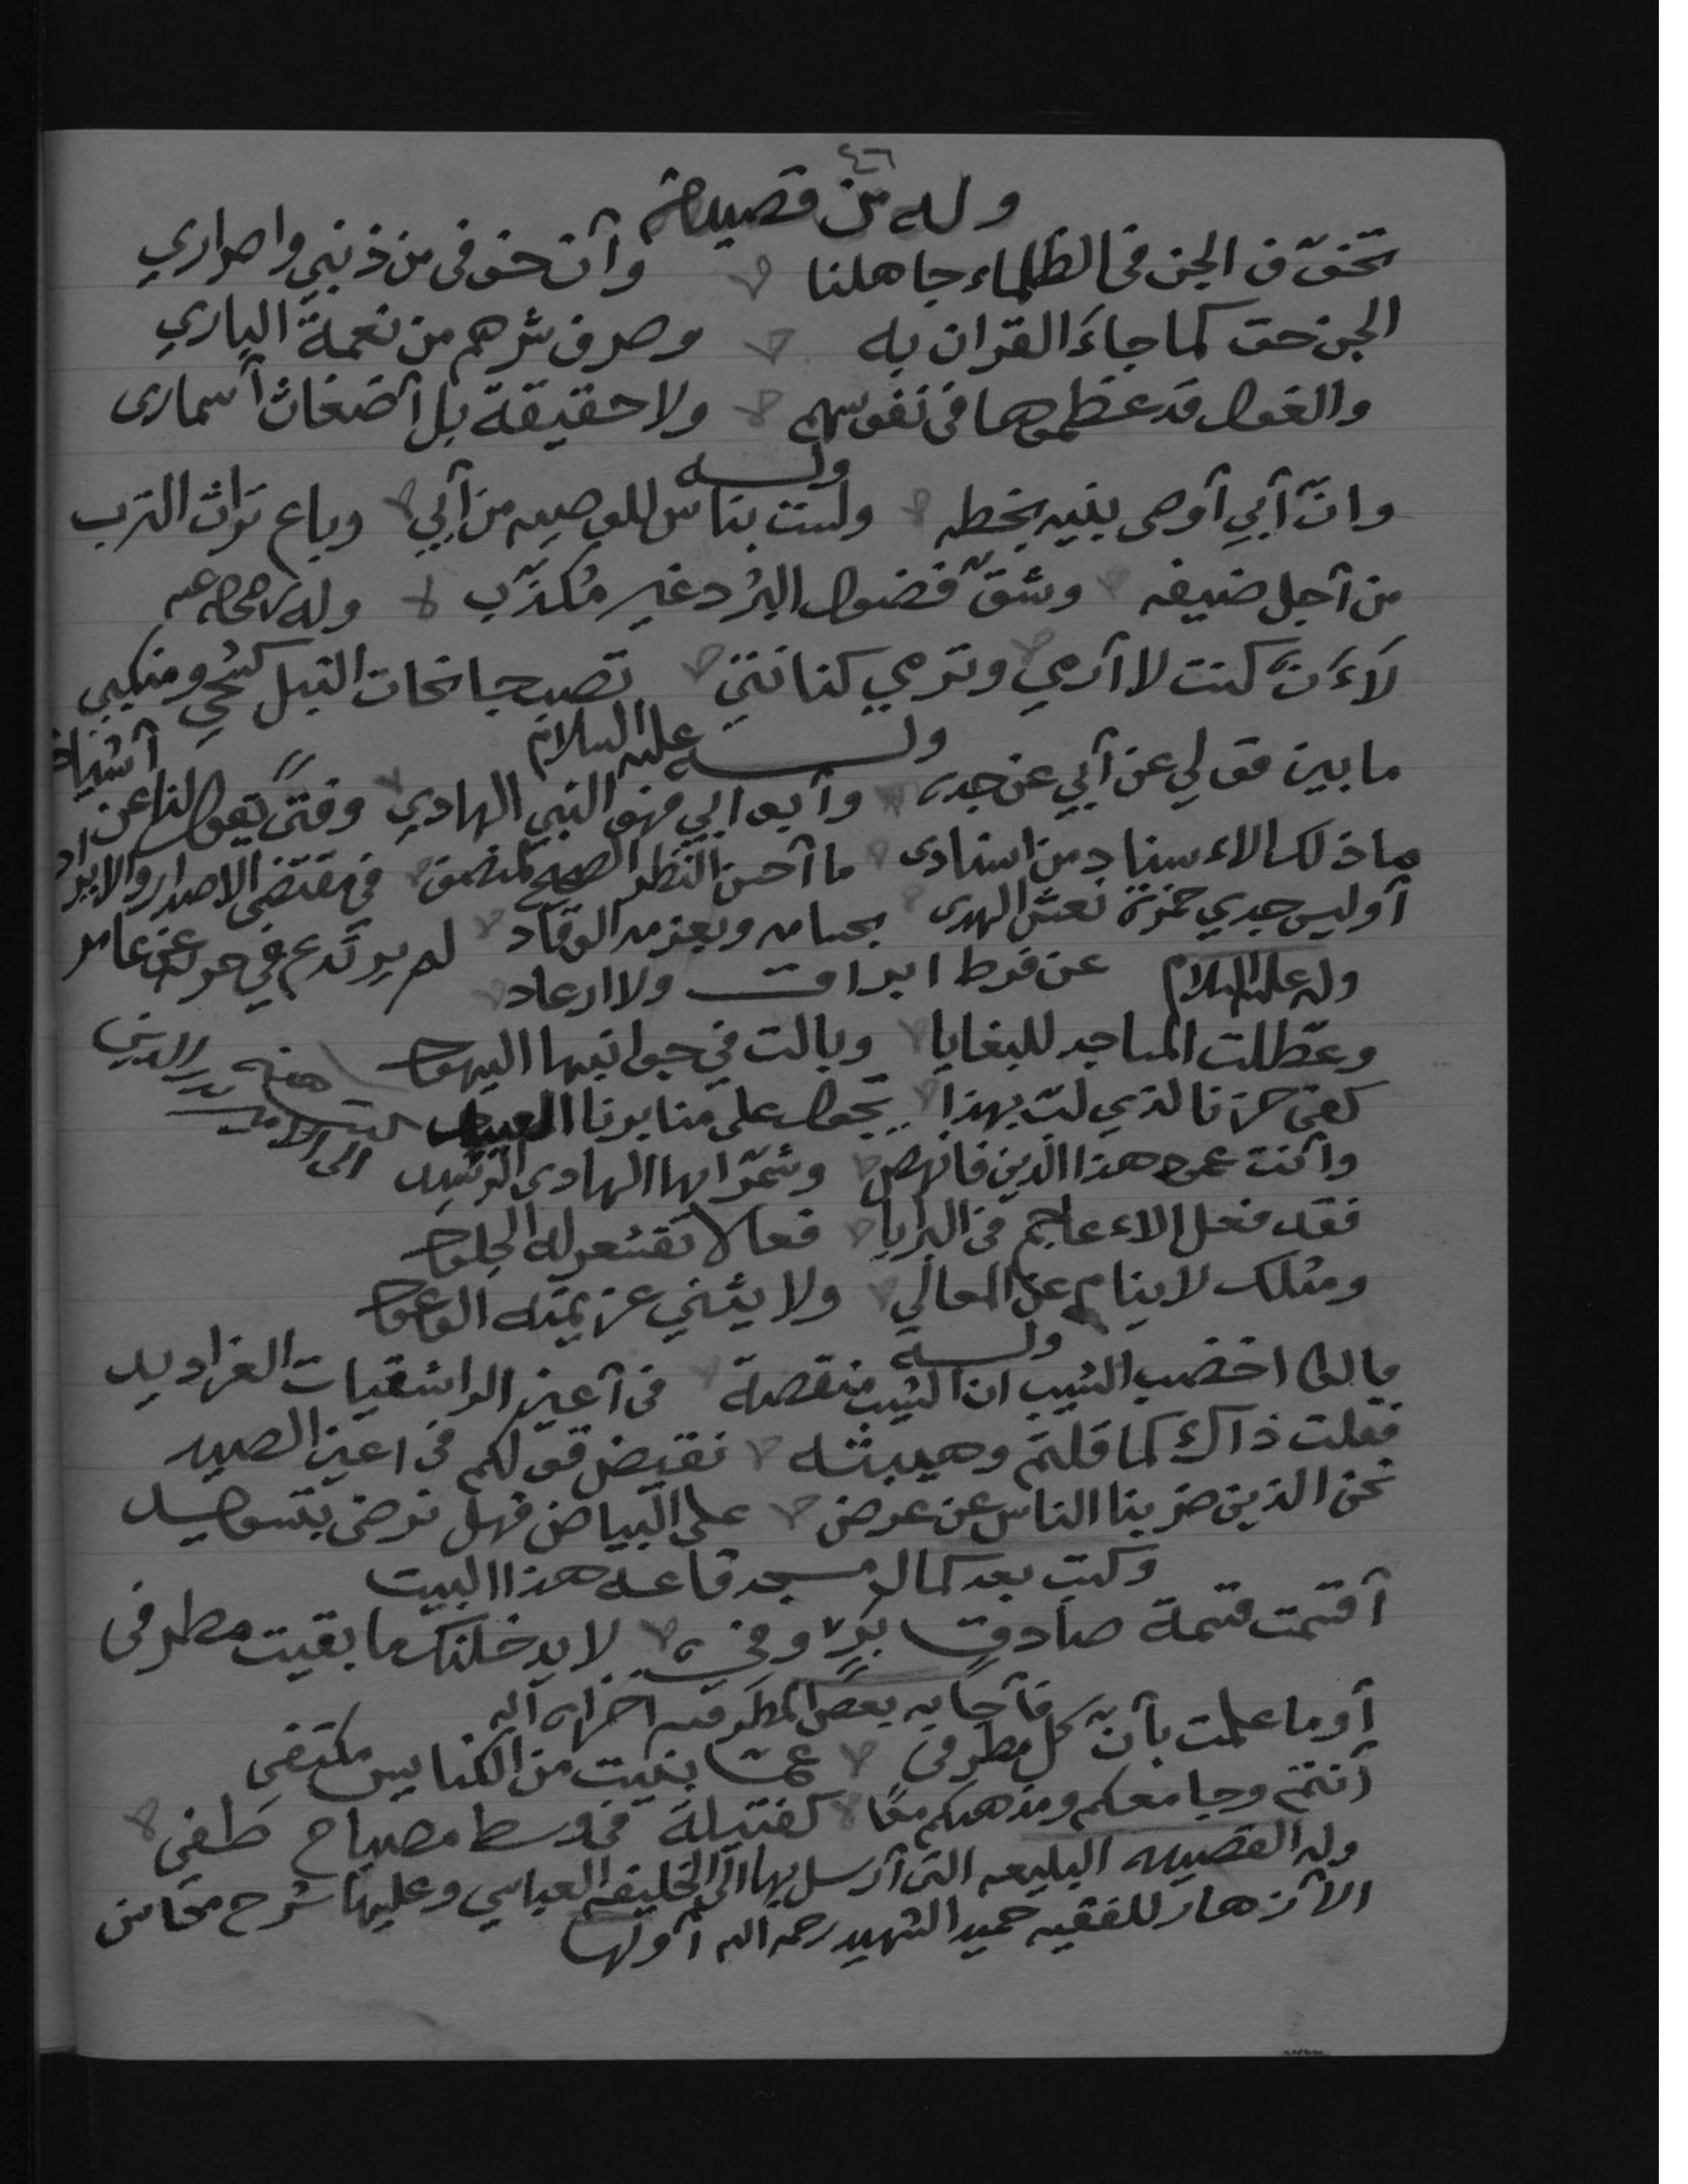 ٤٦
وله من قصيدة
تخوّف الجن في الظلماء جاهلنا وأن خوفي من ذنبي واصراري
الجن حق كما جاءَ القران به وصرف شرهم من نعمة الباري
والغول قد عظموها في نفوسهم ولا حقيقة بل أضغاث أسماري
وله
وانّ أبي أوصى بنيه بخطه ولست بناس للوصيه من أبي وباع تراث الترب
من أجل ضيفه وشقّ فضول البُرد غير مُكذّب وله
لَاءَن كنت لا أرمي وترمي كنانتي تصب جانحات النبل كشحي ومنكبي
وله عليه السلام
ما بين قولي عن أبي عن جده وأبو ابي فهو النبي الهادي وفتىً يقول لنا عن أشياخه
ماذلك الاءسناد من اسنادى ما أحسن النظر الصحيح لمنصف في مقتضى الاصدار والايراد
أوليس جدي حمزة نعش الهدى بحسامه وبعزمه الوقاد لم يرتدع في حربه عن عامر
وله عليه السلام عن فرط ابراق ولا ارعاد
وعطلت المساجد للبغايا وبالت في جوانبها اليهود
كفى حزنا لذي لبّ بهذا يجول على منابرنا العبيد
وأنت عمود هذا الدين فانهض وشمّر ايها الهادى الرشيد
كتب هنه الى الامير بدر الدين
فقد فعل الاءعاجم في البرايا فعالا تقشعر له الجلود
ومثلك لا ينام عن المعالي ولا يثني عزيمته الوعود
وله
قالوا اخضب الشيب ان الشيب منقصة في أعين الراشقيات الغراديد
فقلت ذاك كما قلتم وهيبته نقيض قولكم في اعين الصيد
نحن الذين ضربنا الناس عن عرض على البياض فهل نرضى بتسويد
وكتب بعد كمال مسجد قاعه هذا البيت
أقسمت قسمة صادقٍ برٍّ وفي لا يدخلنك ما بقيت مطرفي
فأجابه بعض المطرفيه اخزاه الله
أوما علمت بأنّ كل مطرفي عما بنيت من الكنايس مكتفي
أنتم وجامعكم ومذهبكم معًا كفتيلة في وسط مصباح طفي
وله القصيده البليعه التي أرسل بها الى الخليفه العباسي وعليها شرح محاسن
الأزهار للفقيه حميد الشهيد رحمه الله أولها